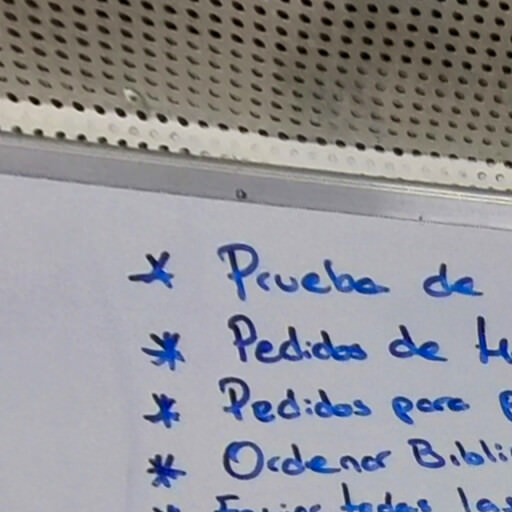 * Prueba de
* Pedidos de
* Pedidos para
* Ordenar Bibli
* Enviar todas las